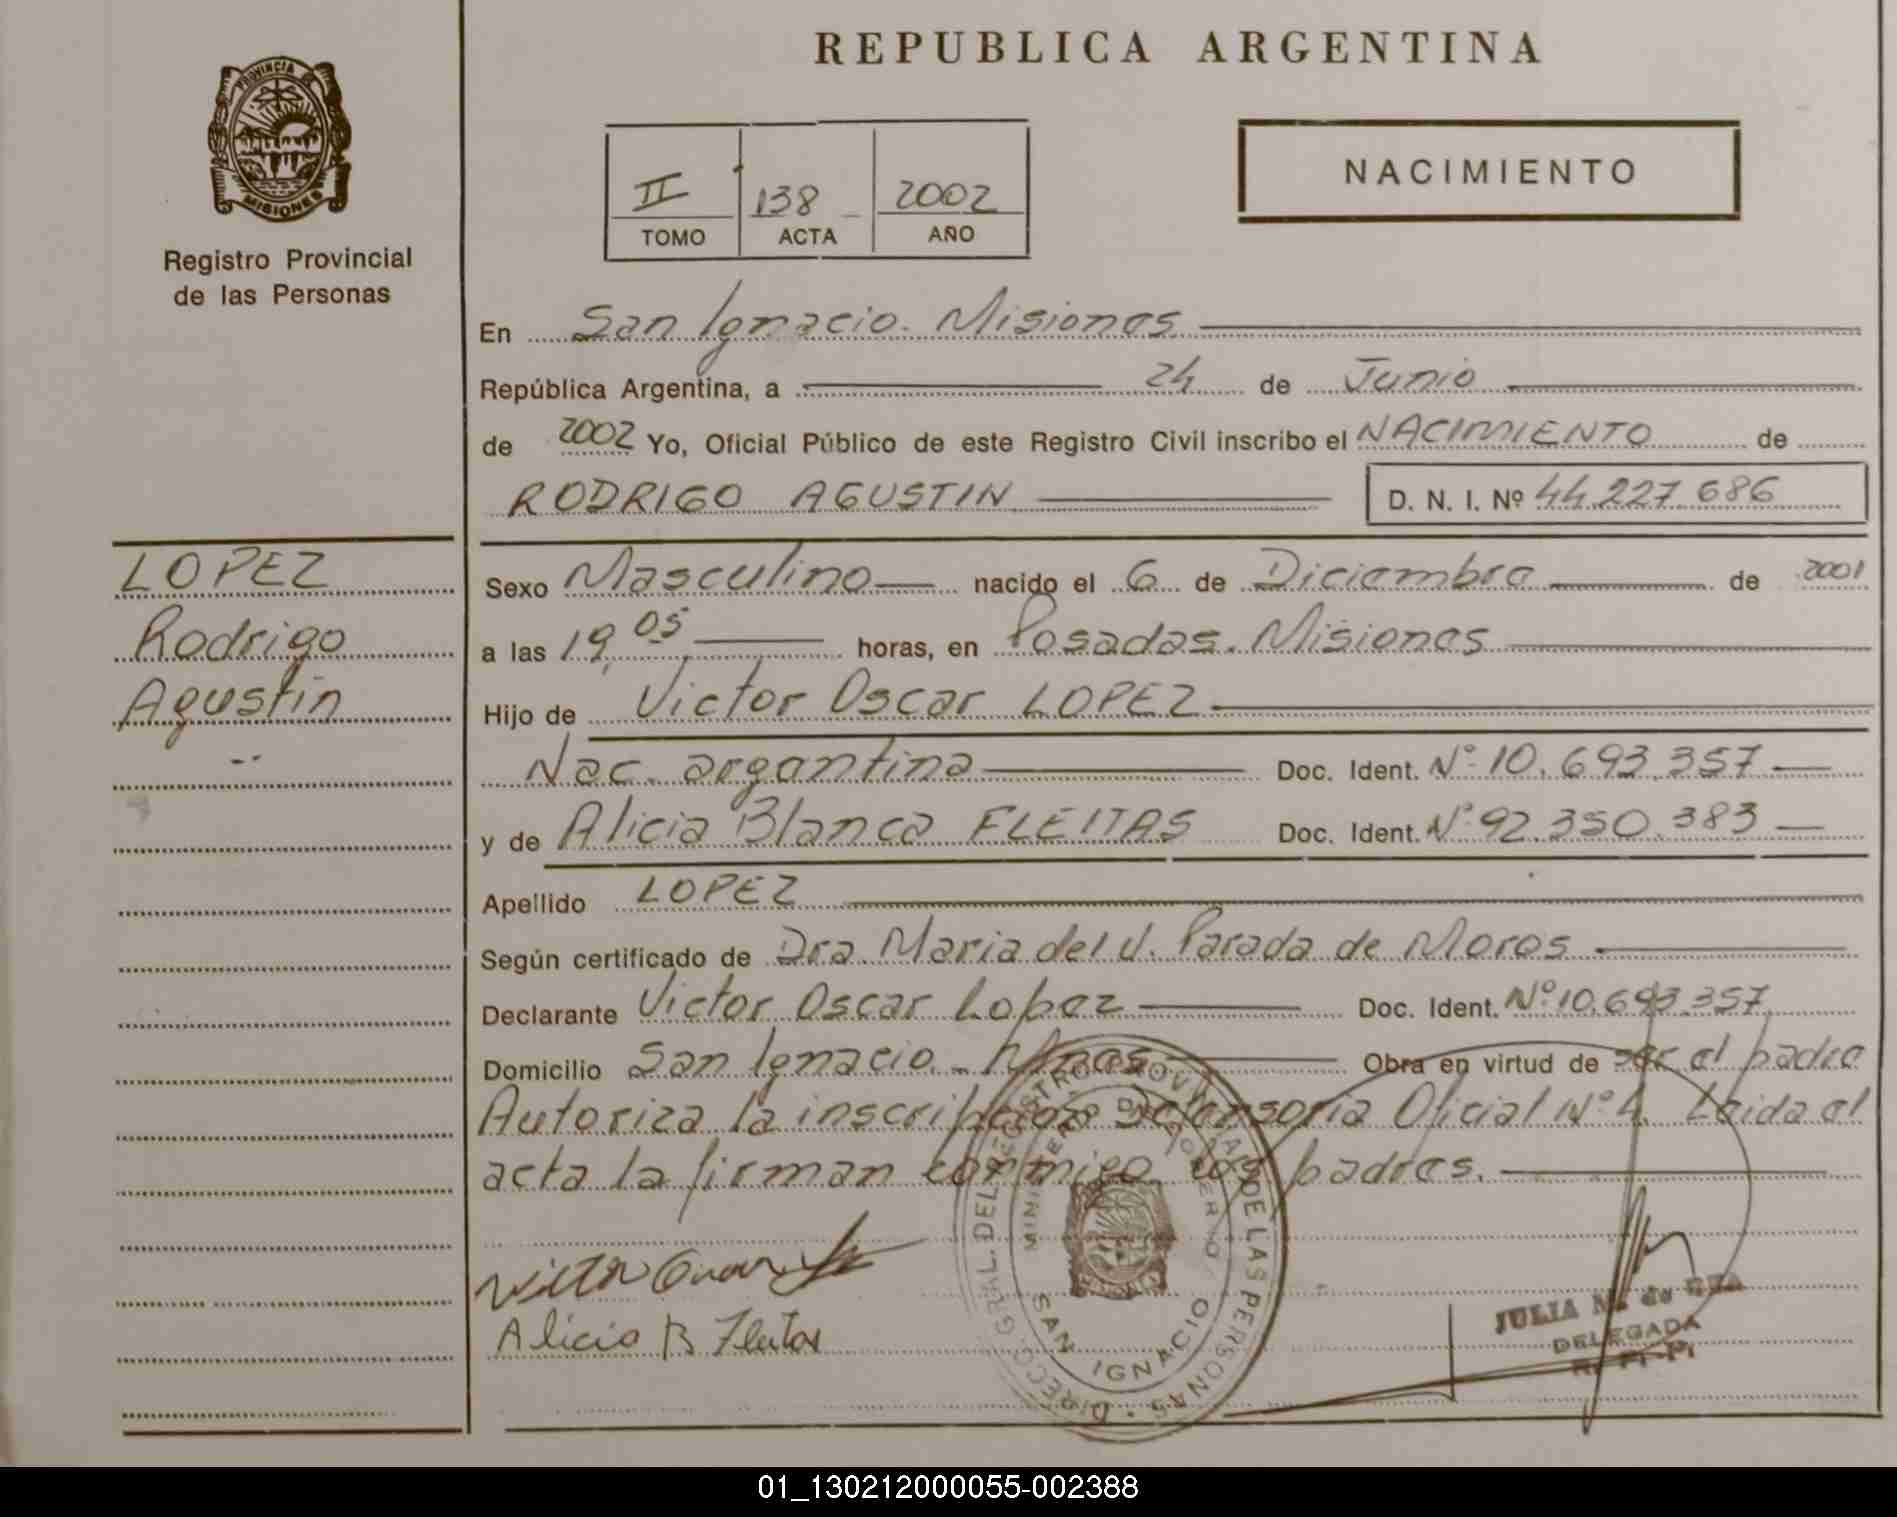 REPUBLICA ARGENTINA
PROVINCIA DE
MISIONES
Registro Provincial
de las Personas
II 138 2002
TOMO ACTA AÑO
NACIMIENTO
En San Ignacio. Misiones
República Argentina, a 24 de Junio
de 2002 Yo, Oficial Público de este Registro Civil inscribo el NACIMIENTO de
RODRIGO AGUSTIN D. N. I. Nº 44.227.686
LOPEZ
Rodrigo
Agustin
Sexo Masculino nacido el 6 de Diciembre de 2001
a las 19,05 horas, en Posadas. Misiones
Hijo de Victor Oscar LOPEZ
Nac. argentina Doc. Ident. Nº 10.693.357
y de Alicia Blanca FLEITAS Doc. Ident. Nº 92.350.383
Apellido LOPEZ
Según certificado de Dra. Maria del V. Parada de Moros
Declarante Victor Oscar Lopez Doc. Ident. Nº 10.693.357
Domicilio San Ignacio. Mnes Obra en virtud de ser el padre
Autoriza la inscripcion Defensoria Oficial Nº 4. Leida el
acta la firman conmigo los padres.
Victor
Alicia B Fleitas
DIRECC. GRAL. DEL REGISTRO PROVINCIAL DE LAS PERSONAS
MINISTERIO DE GOBIERNO
SAN IGNACIO
JULIA M. de
DELEGADA
R. P. P.
01_130212000055-002388